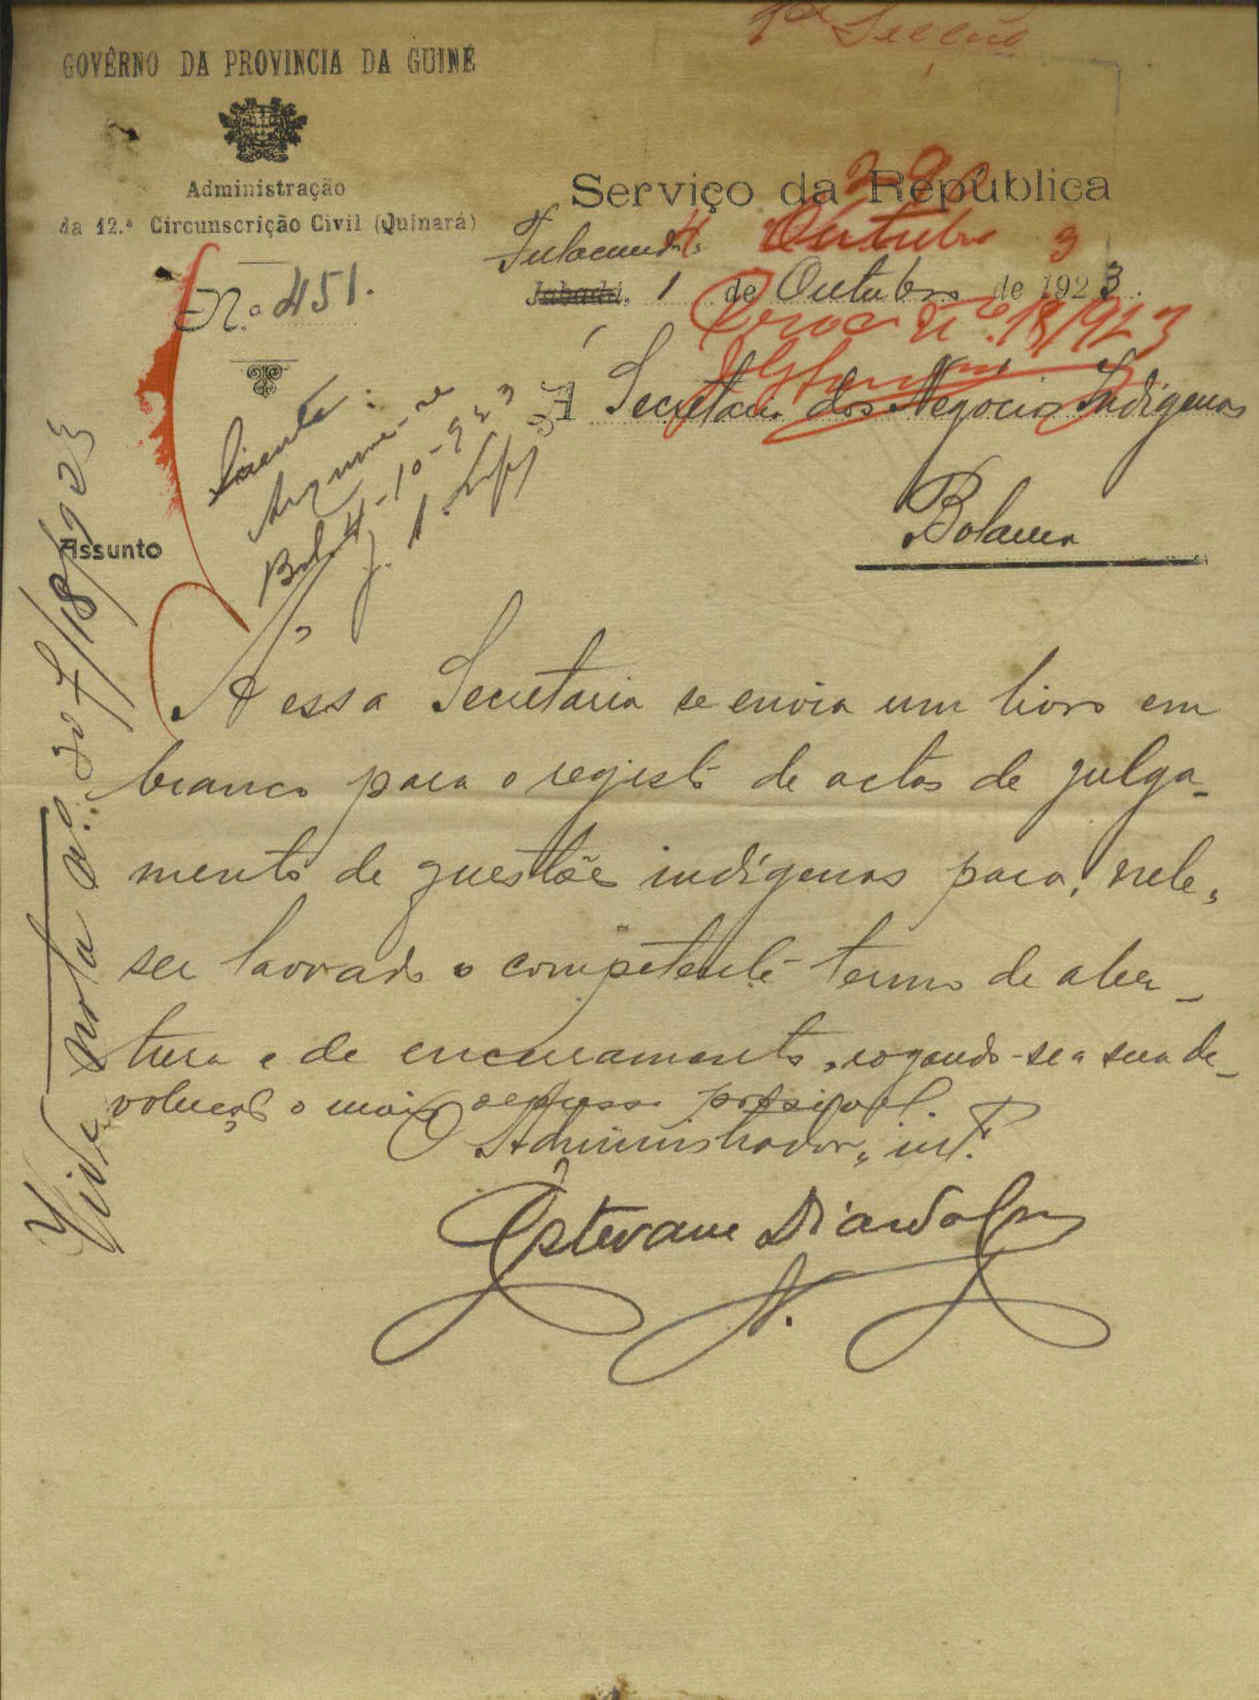 1ª Secção
GOVÊRNO DA PROVINCIA DA GUINÉ
Administração
da 12.ª Circunscrição Civil (Quinará)
N.º 451.
Serviço da República
280
4 Outubro 3
Fulacunda
Jabadá, 1 de Outubro de 1923.
Proc. nº 18/923
Á Secretaria dos Negocios Indígenas
Bolama
Ciente:
Arquive-se
Bol. 4-10-923
Assunto
A essa Secretaria se envia um livro em
branco para o registo de actos de julga-
mento de questões indígenas para, nele,
ser lavrado o competente termo de aber-
tura e de encerramento, rogando-se a sua de-
volução o mais possivel.
O Administrador, int.º
Estevam
Vide nota nº 207/18/923